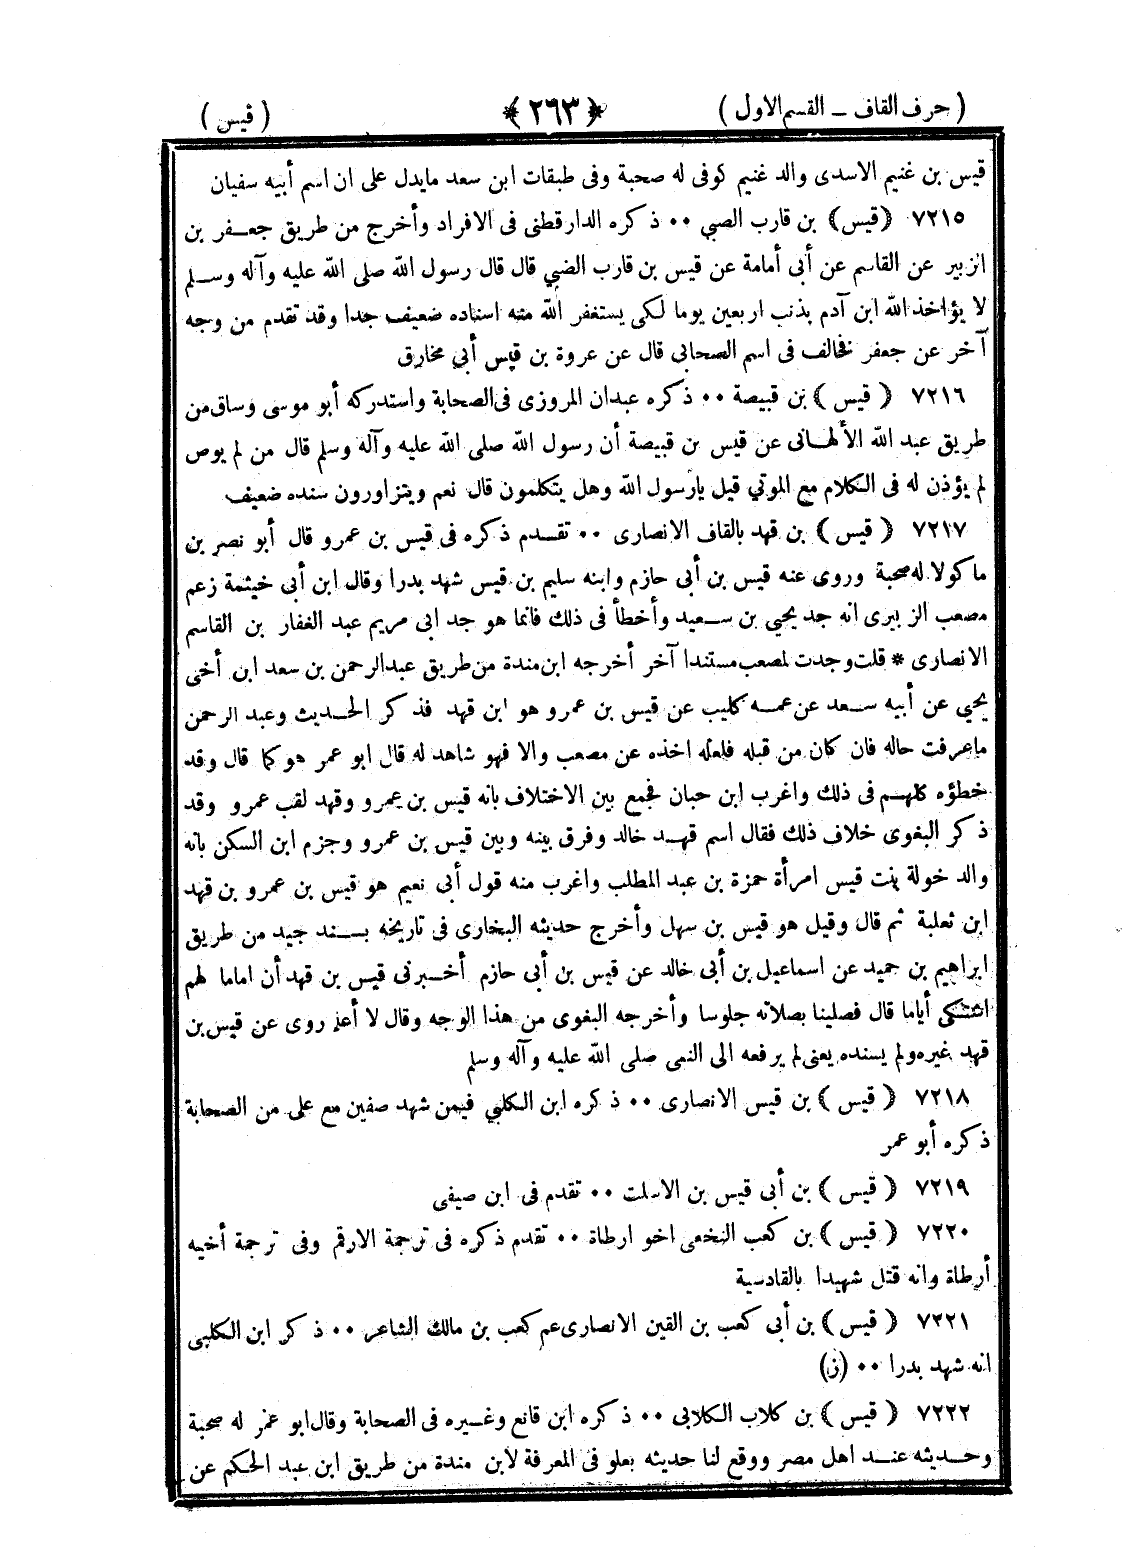 ( حرف القاف – القسم الاول ) ﴿ ٢٦٣ ﴾ ( قيس )
قيس بن غنيم الاسدى والد غنيم كوفى له صحبة وفى طبقات ابن سعد مايدل على ان اسم أبيه سفيان
٧٢١٥ ﴿قيس﴾ بن قارب الضبي ٠٠ ذكره الدارقطنى فى الافراد وأخرج من طريق جعفر بن
الزبير عن القاسم عن أبى أمامة عن قيس بن قارب الضبي قال قال رسول الله صلى الله عليه وآله وسلم
لا يؤاخذ الله ابن آدم بذنب اربعين يوما لكى يستغفر الله منه اسناده ضعيف جدا وقد تقدم من وجه
آخر عن جعفر فخالف فى اسم الصحابى قال عن عروة بن قيس أبي مخارق
٧٢١٦ ﴿ قيس ﴾ بن قبيصة ٠٠ ذكره عبدان المروزى فى الصحابة واستدركه أبو موسى وساق من
طريق عبد الله الألهانى عن قيس بن قبيصة أن رسول الله صلى الله عليه وآله وسلم قال من لم يوص
لم يؤذن له فى الكلام مع الموتي قيل يارسول الله وهل يتكلمون قال نعم ويتزاورون سنده ضعيف
٧٢١٧ ﴿ قيس ﴾ بن قهد بالقاف الانصارى ٠٠ تقدم ذكره فى قيس بن عمرو قال أبو نصر بن
ماكولا له صحبة وروى عنه قيس بن أبى حازم وابنه سليم بن قيس شهد بدرا وقال ابن أبى خيثمة زعم
مصعب الزبيرى انه جد يحيي بن سعيد وأخطأ فى ذلك فانما هو جد ابى مريم عبد الغفار بن القاسم
الانصارى * قلت وجدت لمصعب مستندا آخر أخرجه ابن مندة من طريق عبدالرحمن بن سعد ابن أخى
يحيي عن أبيه سعد عن عمه كليب عن قيس بن عمرو هو ابن قهد فذكر الحديث وعبد الرحمن
ماعرفت حاله فان كان من قبله فلعله اخذه عن مصعب والا فهو شاهد له قال ابو عمر هو كما قال وقد
خطؤه كلهم فى ذلك واغرب ابن حبان فجمع بين الاختلاف بانه قيس بن عمرو وقهد لقب عمرو وقد
ذكر البغوى خلاف ذلك فقال اسم قهد خالد وفرق بينه وبين قيس بن عمرو وجزم ابن السكن بانه
والد خولة بنت قيس امرأة حمزة بن عبد المطلب واغرب منه قول أبى نعيم هو قيس بن عمرو بن قهد
ابن ثعلبة ثم قال وقيل هو قيس بن سهل وأخرج حديثه البخارى فى تاريخه بسند جيد من طريق
ابراهيم بن حميد عن اسماعيل بن أبى خالد عن قيس بن أبى حازم أخبرنى قيس بن قهد أن اماما لهم
اشتكى أياما قال فصلينا بصلاته جلوسا وأخرجه البغوى من هذا الوجه وقال لا أعلم روى عن قيس بن
قهد غيره ولم يسنده يعنى لم يرفعه الى النبى صلى الله عليه وآله وسلم
٧٢١٨ ﴿ قيس ﴾ بن قيس الانصارى ٠٠ ذكره ابن الكلبي فيمن شهد صفين مع على من الصحابة
ذكره أبو عمر
٧٢١٩ ﴿ قيس ﴾ بن أبى قيس بن الاسلت ٠٠ تقدم فى ابن صيفى
٧٢٢٠ ﴿ قيس ﴾ بن كعب النخعى اخو ارطاة ٠٠ تقدم ذكره فى ترجمة الارقم وفى ترجمة أخيه
أرطاة وانه قتل شهيدا بالقادسية
٧٢٢١ ﴿ قيس ﴾ بن أبى كعب بن القين الانصارى عم كعب بن مالك الشاعر ٠٠ ذكر ابن الكلبى
انه شهد بدرا ٠٠ (ز)
٧٢٢٢ ﴿ قيس ﴾ بن كلاب الكلابى ٠٠ ذكره ابن قانع وغيره فى الصحابة وقال ابو عمر له صحبة
وحديثه عند اهل مصر ووقع لنا حديثه بعلو فى المعرفة لابن مندة من طريق ابن عبد الحكم عن